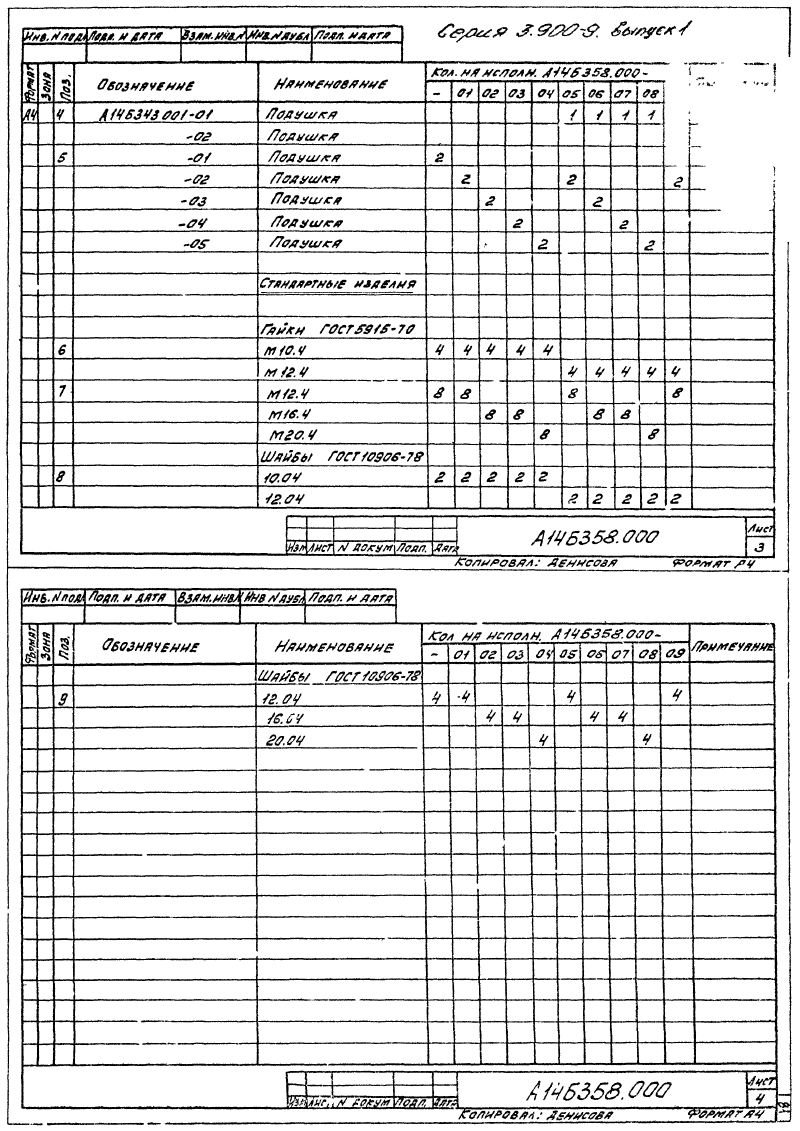 Серия 3.900-9. Выпуск 1
Инв. N подл Подп. и дата Взам. инв. N Инв. N дубл Подп. и дата
Формат Зона Поз. Обозначение Наименование Кол. на исполн. А14Б358.000-
- 01 02 03 04 05 06 07 08
А4 4 А14Б343.001-01 Подушка 1 1 1 1
-02 Подушка
5 -01 Подушка 2
-02 Подушка 2 2 2
-03 Подушка 2 2
-04 Подушка 2 2
-05 Подушка 2 2
Стандартные изделия
Гайки ГОСТ 5915-70
6 М10.4 4 4 4 4 4
М12.4 4 4 4 4 4
7 М12.4 8 8 8 8
М16.4 8 8 8 8
М20.4 8 8
Шайбы ГОСТ 10906-78
8 10.04 2 2 2 2 2
12.04 2 2 2 2 2
Изм Лист N докум Подп. Дата А14Б358.000 Лист 3
Копировал: Денисова Формат А4
Инв. N подл Подп. и дата Взам. инв. N Инв N дубл Подп. и дата
Формат Зона Поз. Обозначение Наименование Кол на исполн. А14Б358.000- Примечание
- 01 02 03 04 05 06 07 08 09
Шайбы ГОСТ 10906-78
9 12.04 4 4 4 4
16.04 4 4 4 4
20.04 4 4
Изм Лист N докум Подп. Дата А14Б358.000 Лист 4
Копировал: Денисова Формат А4
18